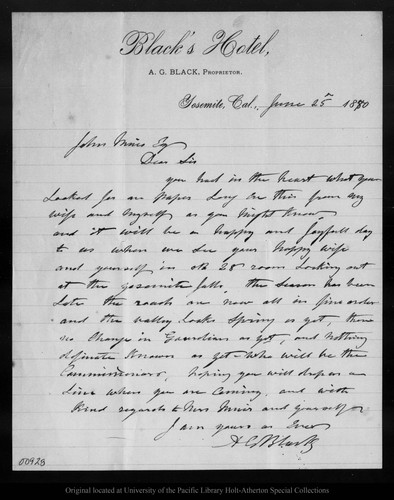 Black's Hotel,
A. G. BLACK, PROPRIETOR.
Yosemite, Cal., June 25th 1880
John Muir Sq
Dear Sir
you had in the heart what you
Looked for on paper Long on this from my
wife and myself as you might know
and it will be a happy and Joyfull day
to us when we see your happy wife
and yourself in old 28 room Looking out
at the yosemite falls. the season has been
Late the roads are now all in fine order
and the valley Looks Spring as yet, there
no Change in Guardians as yet, and nothing
definate Known as yet Who will be the
Commissioners, hoping you will drop us a
Line when you are Coming, and with
Kind regards to Mrs Muir and yourself
I am yours as Ever
A G Black
00923
Original located at University of the Pacific Library Holt-Atherton Special Collections